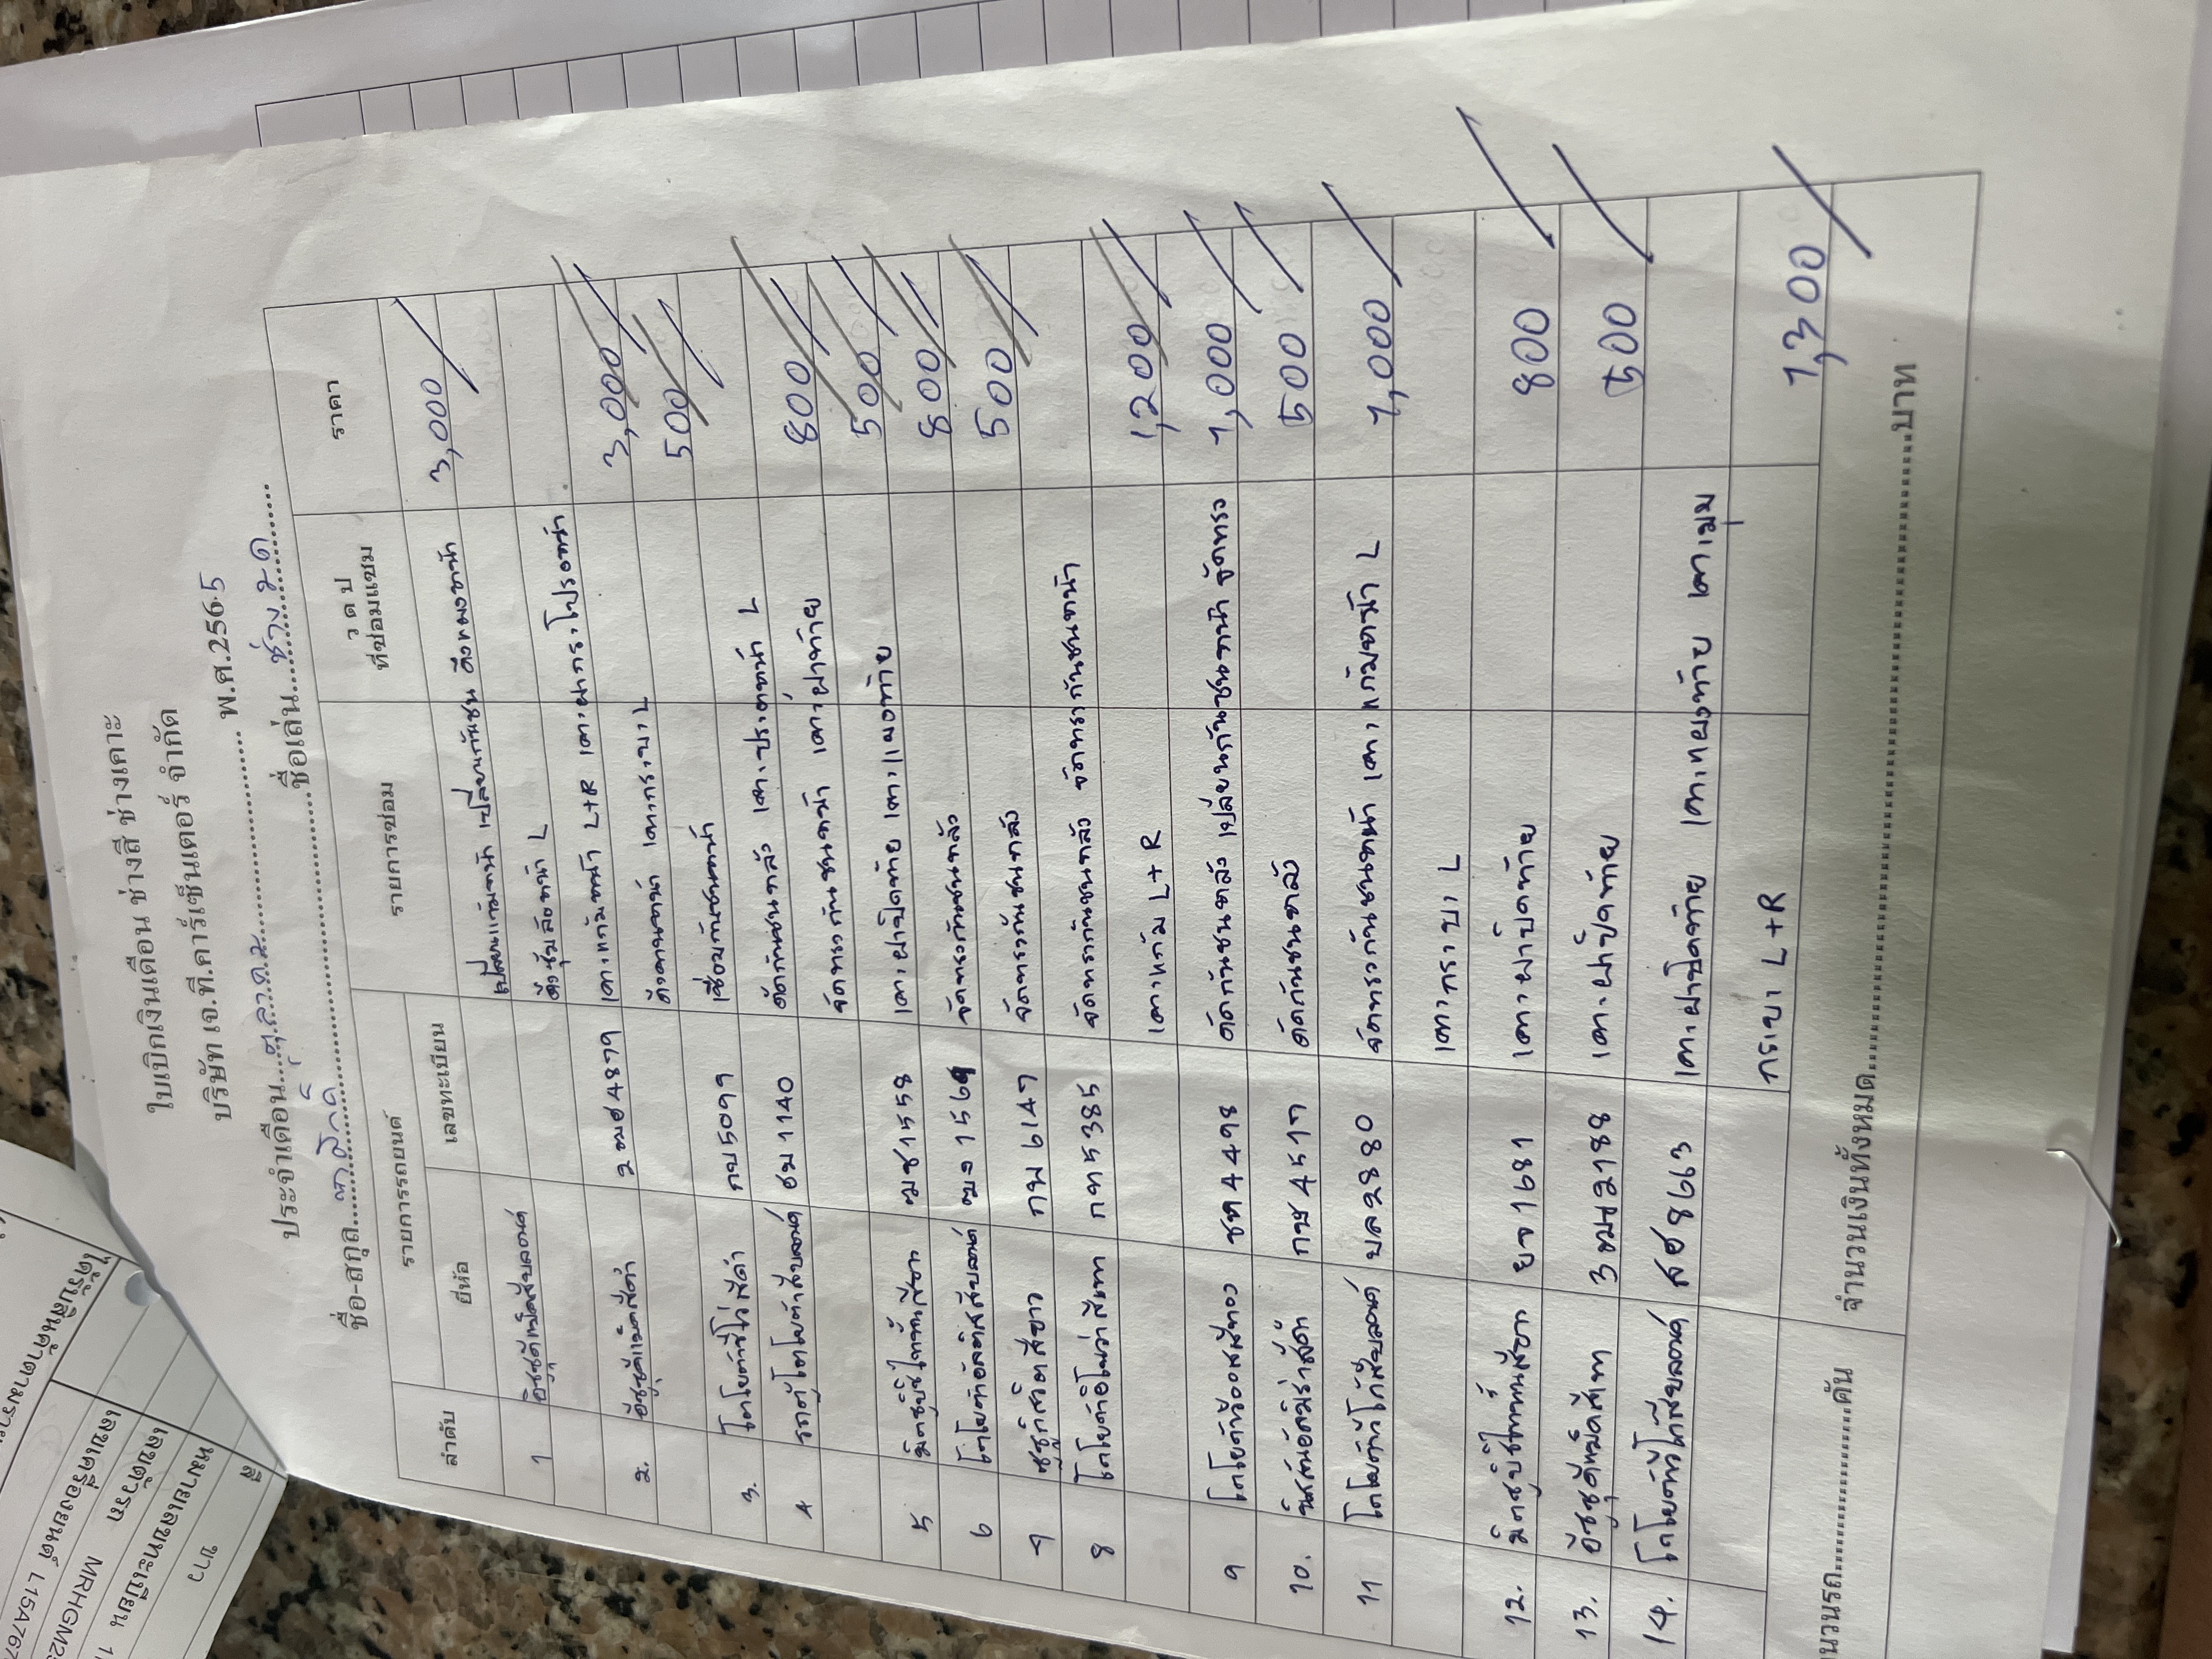 ใบเบิกเงินเดือน ช่างสี ช่างเคาะ
บริษัท เจ.ที.คาร์เซ็นเตอร์ จำกัด
ประจำเดือน....ตุลาคม.... พ.ศ.2565
ชื่อ-สกุล.... ชื่อเล่น....ช่างมด....
ลำดับ รายการรถยนต์ รายการซ่อม ว ด ป ที่ซ่อมแซม ราคา
ยี่ห้อ เลขทะเบียน
1 อีซูซุดีแม็คสีบลอนด์ เปลี่ยนแก้มหน้า เปลี่ยนกันชน ดึงหมวงหน้า 3,000
ดึงซุ้มล้อหน้า L
2. อีซูซุดีแม็คสีดำ 2ฒฮ4879 เคาะแก้มหน้า L+R เคาะฝากระโปรงหน้า 3,000
ดึงคานหน้า เคาะกระบะ L 500
3. โตโยต้าวีโก้สีดำ กบ5099 เชื่อมกันชนหน้า
4 รถตู้โตโยต้าสีบลอนด์ ฮบ1140 ตัดกันชนหลัง เคาะประตูหน้า L 800
จัดทรงกันชนหน้า เคาะฝาท้าย 500
5 มิตซูบิชิไททั้นสีเทา ฒช1558 เคาะฝาปิดท้าย เคาะแผงท้าย 800
6 โตโยต้าอัลติสสีบลอนด์ จัดทรงกันชนหลัง 500
7 ซูซูกิสวิตสีขาว กพ6147 จัดทรงกันชนหลัง
8 โตโยต้าอินโนว่าสีเทา กท5385 จัดทรงกันชนหลัง จัดทรงกันชนหน้า
เคาะแก้ม L+R 1,200
9 โตโยต้าวีออสสีทอง ชท4498 ตัดกันชนหลัง เปลี่ยนกันชนหน้า จัดทรง 1,000
10. นิสสันอัลเมร่าสีดำ กษ4517 ตัดกันชนหลัง 500
11 โตโยต้าวีโก้สีบลอนด์ บล2880 จัดทรงกันชนหน้า เคาะแก้มหน้า L 1,000
เคาะกระบะ L
12. มิตซูบิชิไททั้นสีเทา ยจ1681 เคาะฝาปิดท้าย 800
13. อีซูซุดีแม็คสีเทา 3ฒฆ2188 เคาะฝาปิดท้าย 500
14. โตโยต้าวีโก้สีบลอนด์ สฮ8663 เคาะฝาปิดท้าย เคาะแผงท้าย เคาะมุม
กระบะ L+R 1,300
นวนรถ....คัน จำนวนเงินทั้งหมด....บาท
ได้รับสินค้าตามราย
เลขเครื่องยนต์ L15A767
เลขตัวรถ MRHGM2
หมายเลขทะเบียน 1
สี ขาว